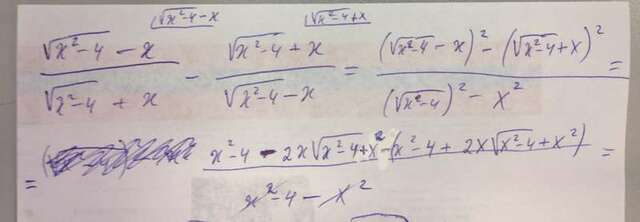 (√(x²-4) - x (√(x²-4) + x
(√(x²-4) - x)/(√(x²-4) + x) - (√(x²-4) + x)/(√(x²-4) - x) = ((√(x²-4) - x)² - (√(x²-4) + x)²)/((√(x²-4))² - x²) =
= (x²-4 - 2x√(x²-4) + x² - (x²-4 + 2x√(x²-4) + x²))/(x²-4 - x²) =